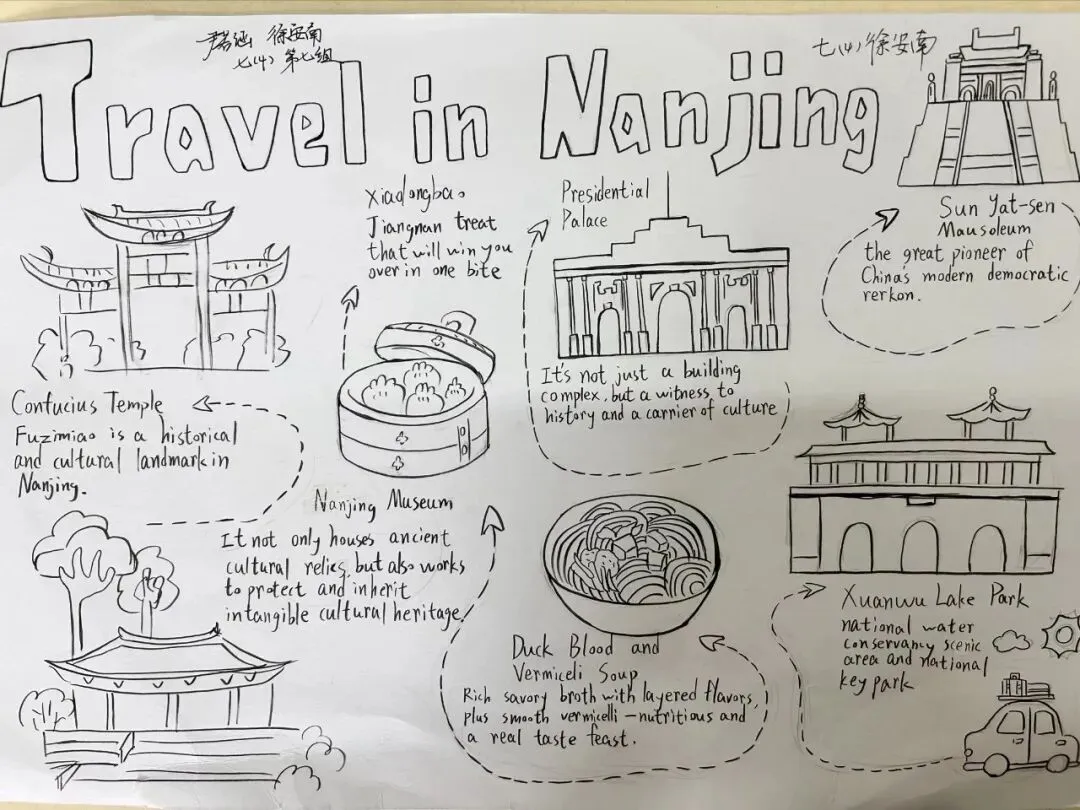 尹若涵 徐安南
七(4) 第七组
七(4)徐安南
Travel in Nanjing
Xiaolongbao
Jiangnan treat
that will win you
over in one bite
Presidential
Palace
It's not just a building
complex, but a witness to
history and a carrier of culture
Sun Yat-sen
Mausoleum
the great pioneer of
China's modern democratic
rerkon.
Confucius Temple
Fuzimiao is a historical
and cultural landmark in
Nanjing.
Nanjing Museum
It not only houses ancient
cultural relics, but also works
to protect and inherit
intangible cultural heritage.
Duck Blood and
Vermiceli Soup
Rich savory broth with layered flavors,
plus smooth vermicelli—nutritious and
a real taste feast.
Xuanwu Lake Park
national water
conservancy scenic
area and national
key park